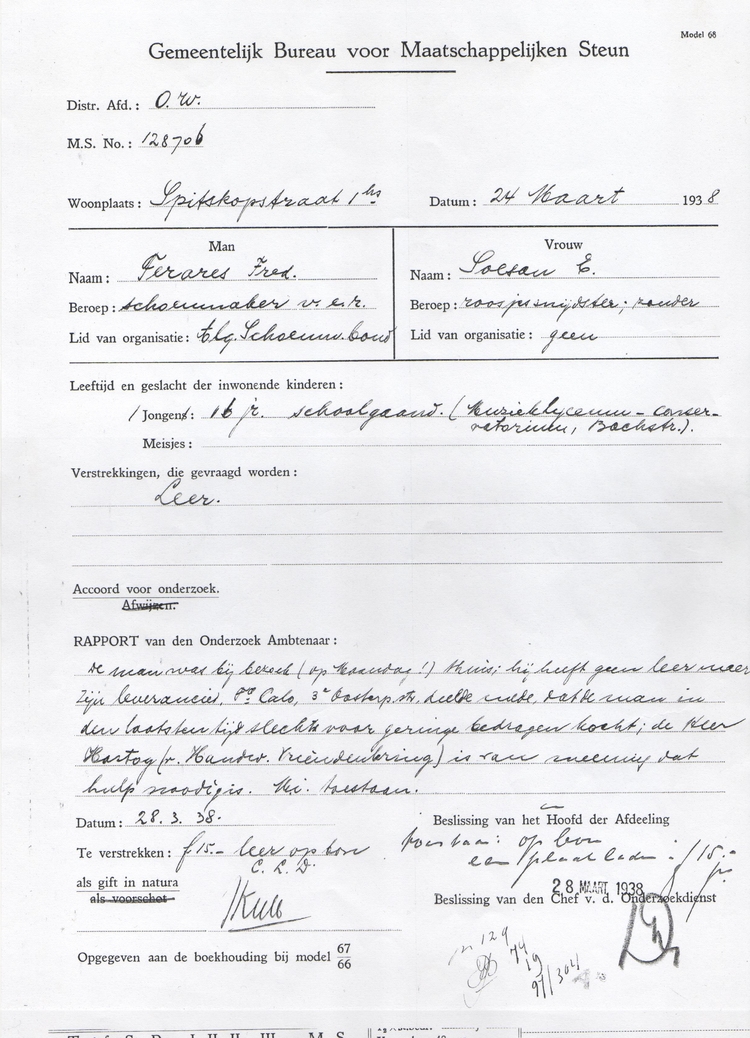 Model 68
Gemeentelijk Bureau voor Maatschappelijken Steun
Distr. Afd.: O.W.
M.S. No.: 128706
Woonplaats: Spitskopstraat 1 hs Datum: 24 Maart 1938
Man
Naam: Ferares Fred.
Beroep: schoenmaker v.e.r.
Lid van organisatie: Alg. Schoenm. bond
Vrouw
Naam: Soesan E.
Beroep: roosjessnijdster; zonder
Lid van organisatie: geen
Leeftijd en geslacht der inwonende kinderen:
1 Jongens: 16 jr. schoolgaand. (Muzieklyceum - conser-
vatorium, Bachstr.).
Meisjes:
Verstrekkingen, die gevraagd worden:
Leer.
Accoord voor onderzoek.
Afwijzen.
RAPPORT van den Onderzoek Ambtenaar:
De man was bij bezoek (op Maandag!) thuis; hij heeft geen leer meer
Zijn leverancier, Calo, 3e Oosterp.str, deelde mede, dat de man in
den laatsten tijd slechts voor geringe bedragen kocht; de Heer
Hartog (v. Handw. Vriendenkring) is van meening dat
hulp noodig is. M.i. toestaan.
Datum: 28.3.38.
Te verstrekken: f 15.- leer op bon
C.L.D.
als gift in natura
als voorschot
Opgegeven aan de boekhouding bij model 67
66
Beslissing van het Hoofd der Afdeeling
toestaan: op bon
een plaat leder f 15.-
28 MAART 1938
Beslissing van den Chef v. d. Onderzoekdienst
129
44
19
97/304